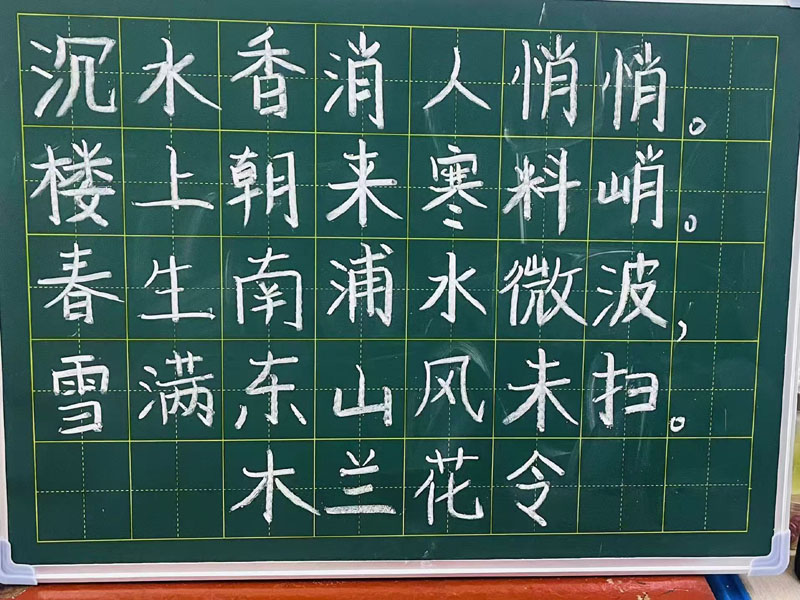 沉水香消人悄悄。
楼上朝来寒料峭。
春生南浦水微波，
雪满东山风未扫。
木兰花令